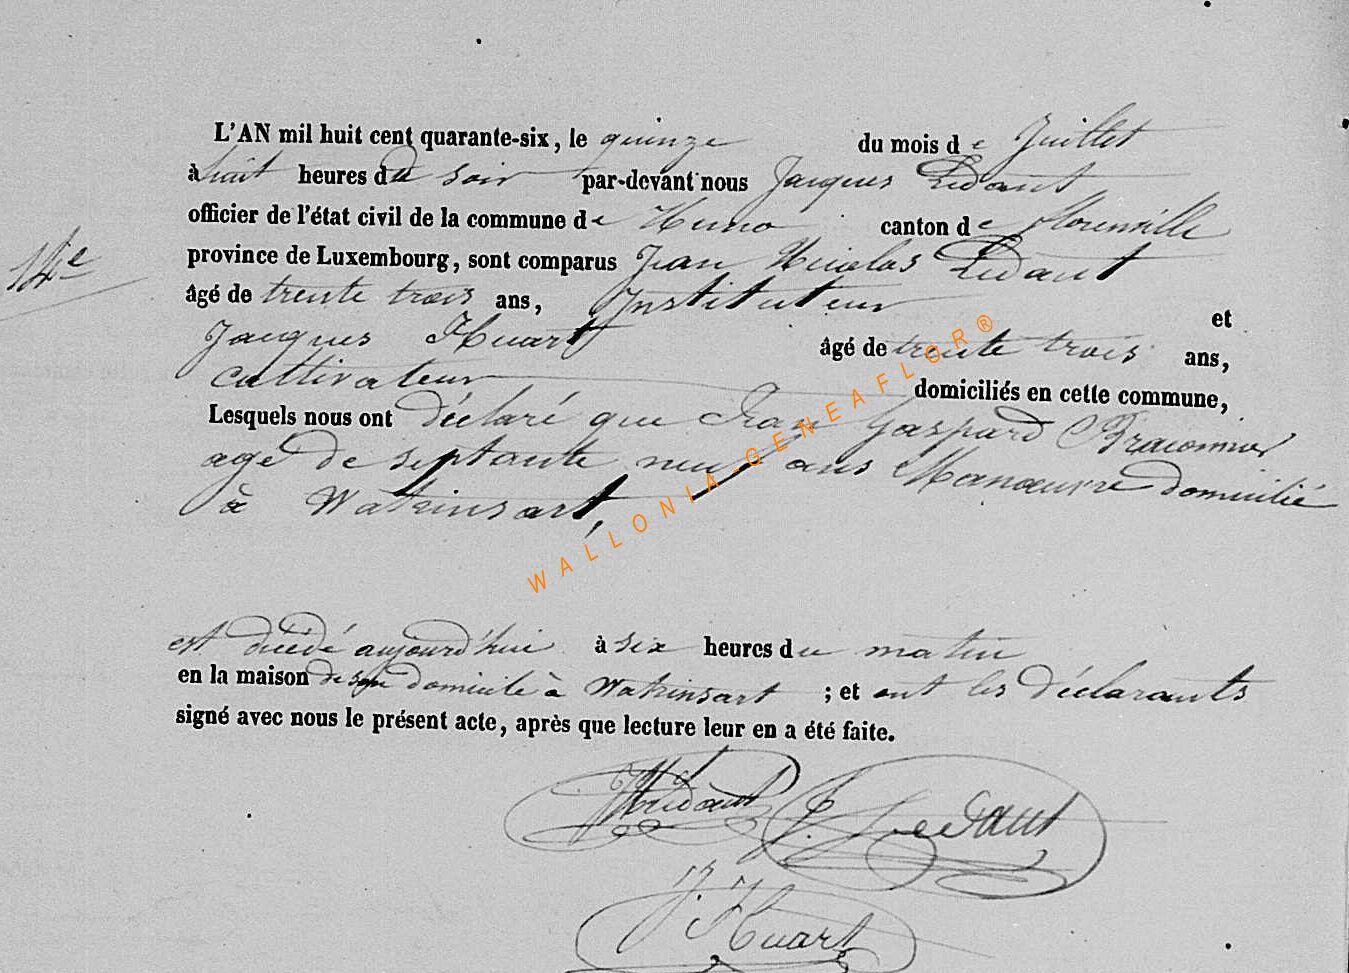 L'AN mil huit cent quarante-six, le quinze du mois de Juillet
à huit heures du soir par-devant nous Jacques Lédant
officier de l'état civil de la commune de Humo canton de Florenville
14e
province de Luxembourg, sont comparus Jean Nicolas Lédant
âgé de trente trois ans, Instituteur et
Jacques Huart âgé de trente trois ans,
cultivateur domiciliés en cette commune,
Lesquels nous ont déclaré que Jean Gaspard Braconnier
agé de septante neuf ans Manœuvre domicilié
à Watrinsart,
WALLONIA-GENEAFLOR®
est décédé aujourd'hui à six heures du matin
en la maison de son domicile à Watrinsart ; et ont les déclarants
signé avec nous le présent acte, après que lecture leur en a été faite.
J. Lédant
J. Huart